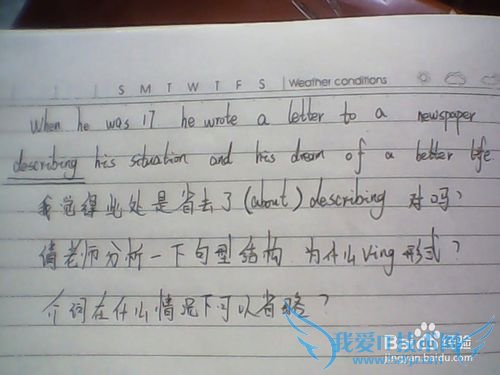 S M T W T F S Weather conditions
When he was 17 he wrote a letter to a newspaper
describing his situation and his dream of a better life
我觉得此处是省去了(about) describing 对吗?
请老师分析一下句型结构 为什么 Ving 形式?
介词在什么情况下可以省略?
我爱IT技术网
Baidu 经验
jingyan.baidu.com